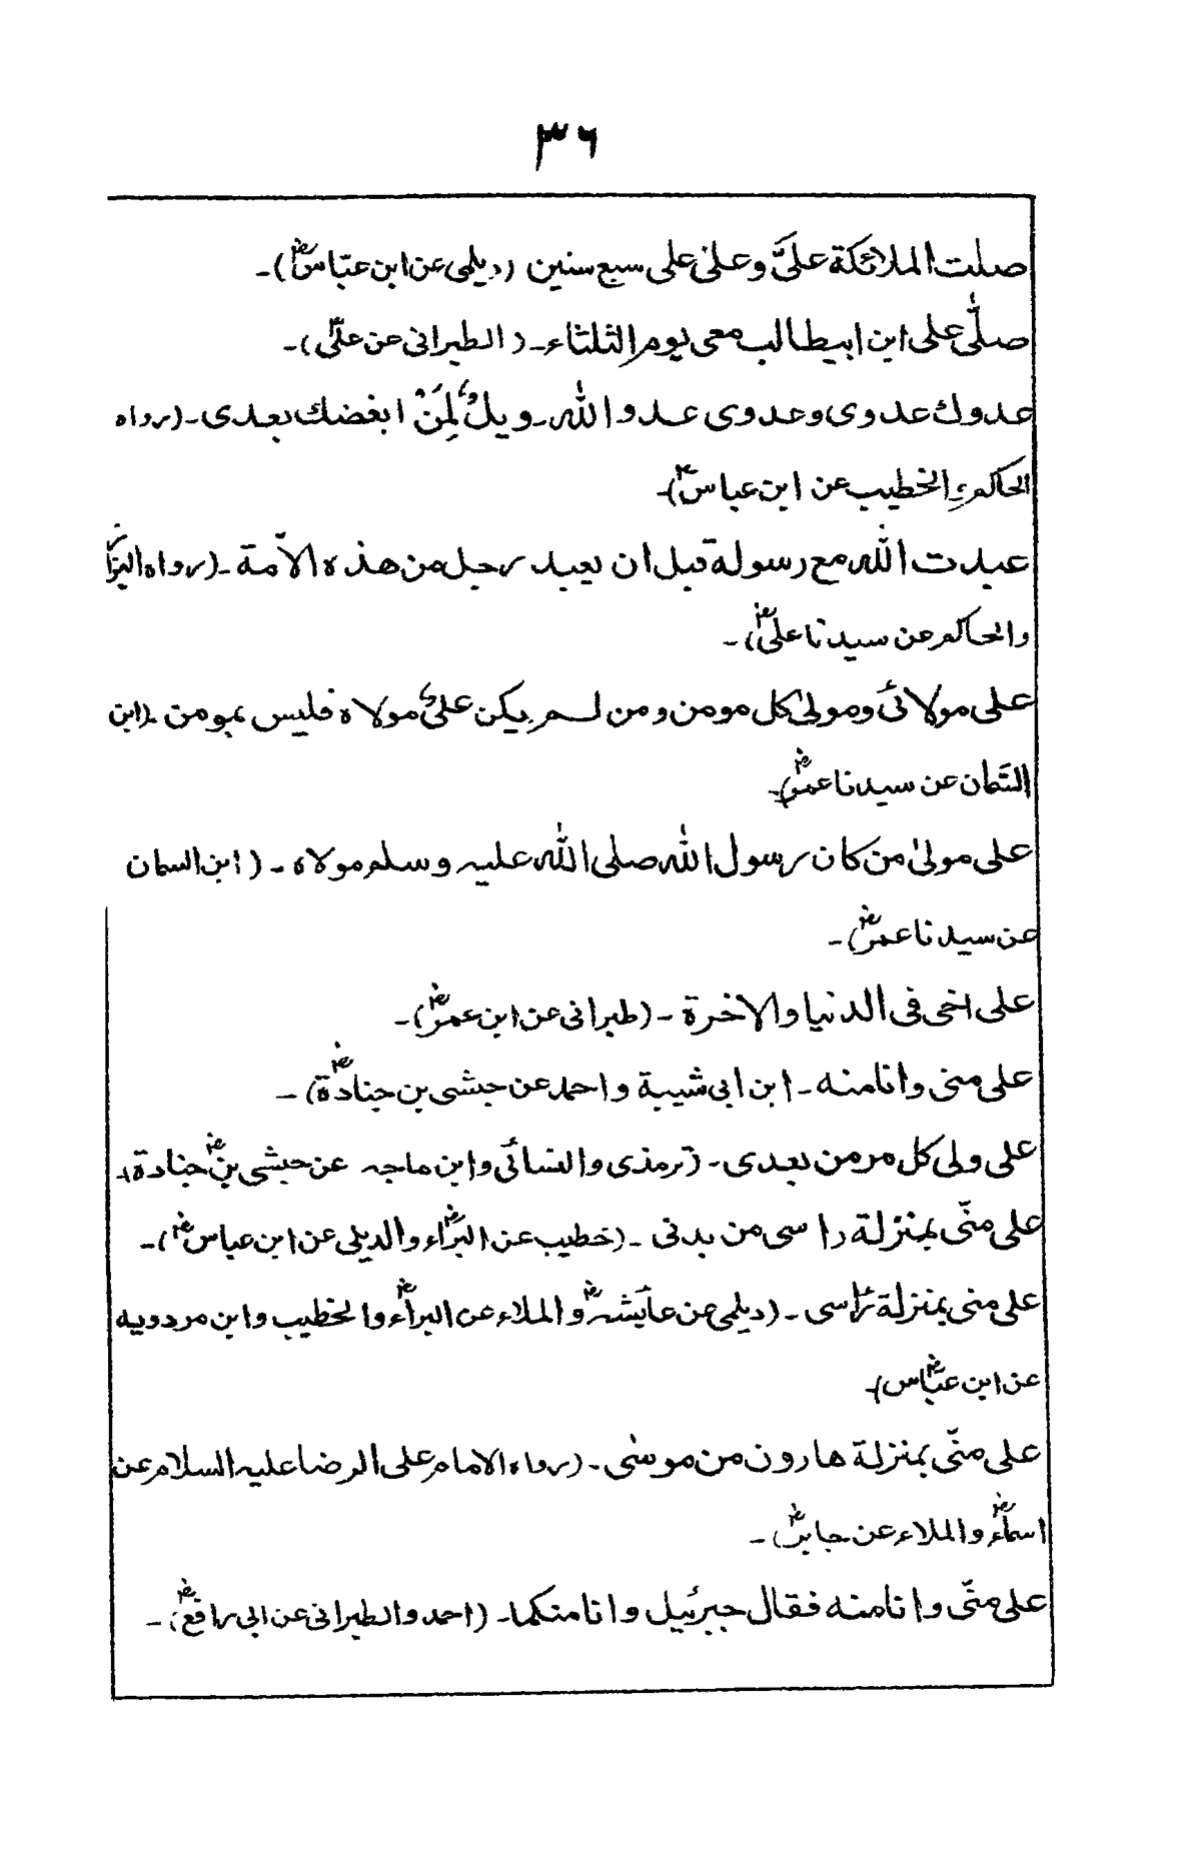 ۳۶
صلت الملائكة علىَّ وعلىٰ على سبع سنين (ديلمى عن ابن عبّاسؓ)۔
صلّٰى على ابن ابيطالب معى يوم الثلثاء۔ (الطبرانى عن علىؓ)۔
عدوك عدوى وعدوى عدو الله۔ ويلٌ لِمَنْ ابغضك بعدى۔ (رواه
الحاكم والخطيب عن ابن عباسؓ)۔
عبدت الله مع رسوله قبل ان يعبد رجل من هذه الاّمة۔ (رواه البزّار
والحاكم عن سيدنا علىؓ)۔
على مولائى ومولىٰ كل مومن ومن لم يكن علىٌ مولاه فليس بمومن۔ (ابن
السَّمان عن سيدنا عمرؓ)۔
على مولىٰ من كان رسول الله صلى الله عليه وسلم مولاه۔ (ابن السمان
عن سيدنا عمرؓ)۔
على اخى فى الدنيا والاخرة۔ (طبرانى عن ابن عمرؓ)۔
على منى وانا منه۔ ابن ابى شيبة واحمد عن حبشى بن جنادةؓ)۔
على ولى كل مومن بعدى۔ (ترمذى والنسائى وابن ماجه عن حبشى بنؓ جنادة)۔
على منّى بمنزلة راسى من بدنى۔ (خطيب عن البرّاءؓ والديلمى عن ابن عباسؓ)۔
على منى بمنزلة رَاسى۔ (ديلمى عن عائشهؓ والملاء عن البراءؓ والخطيب وابن مردويه
عن ابن عبّاسؓ)۔
على منّى بمنزلة هارون من موسٰى۔ (رواه الامام على الرضا عليه السلام عن
اسماءؓ والملاء عن جابرؓ)۔
على منّى وانا منه فقال جبرئيل وانا منكما۔ (احمد والطبرانى عن ابى رافعؓ)۔